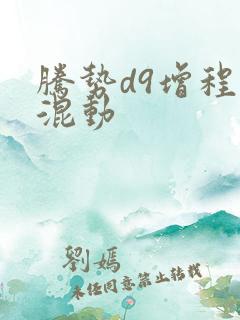 騰勢d9增程
混動
劉嫣
未经同意禁止转载